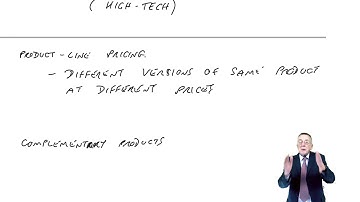 (HIGH-TECH)
PRODUCT-LINE PRICING.
- DIFFERENT VERSIONS OF SAME PRODUCT
AT DIFFERENT PRICES
COMPLEMENTARY PRODUCTS